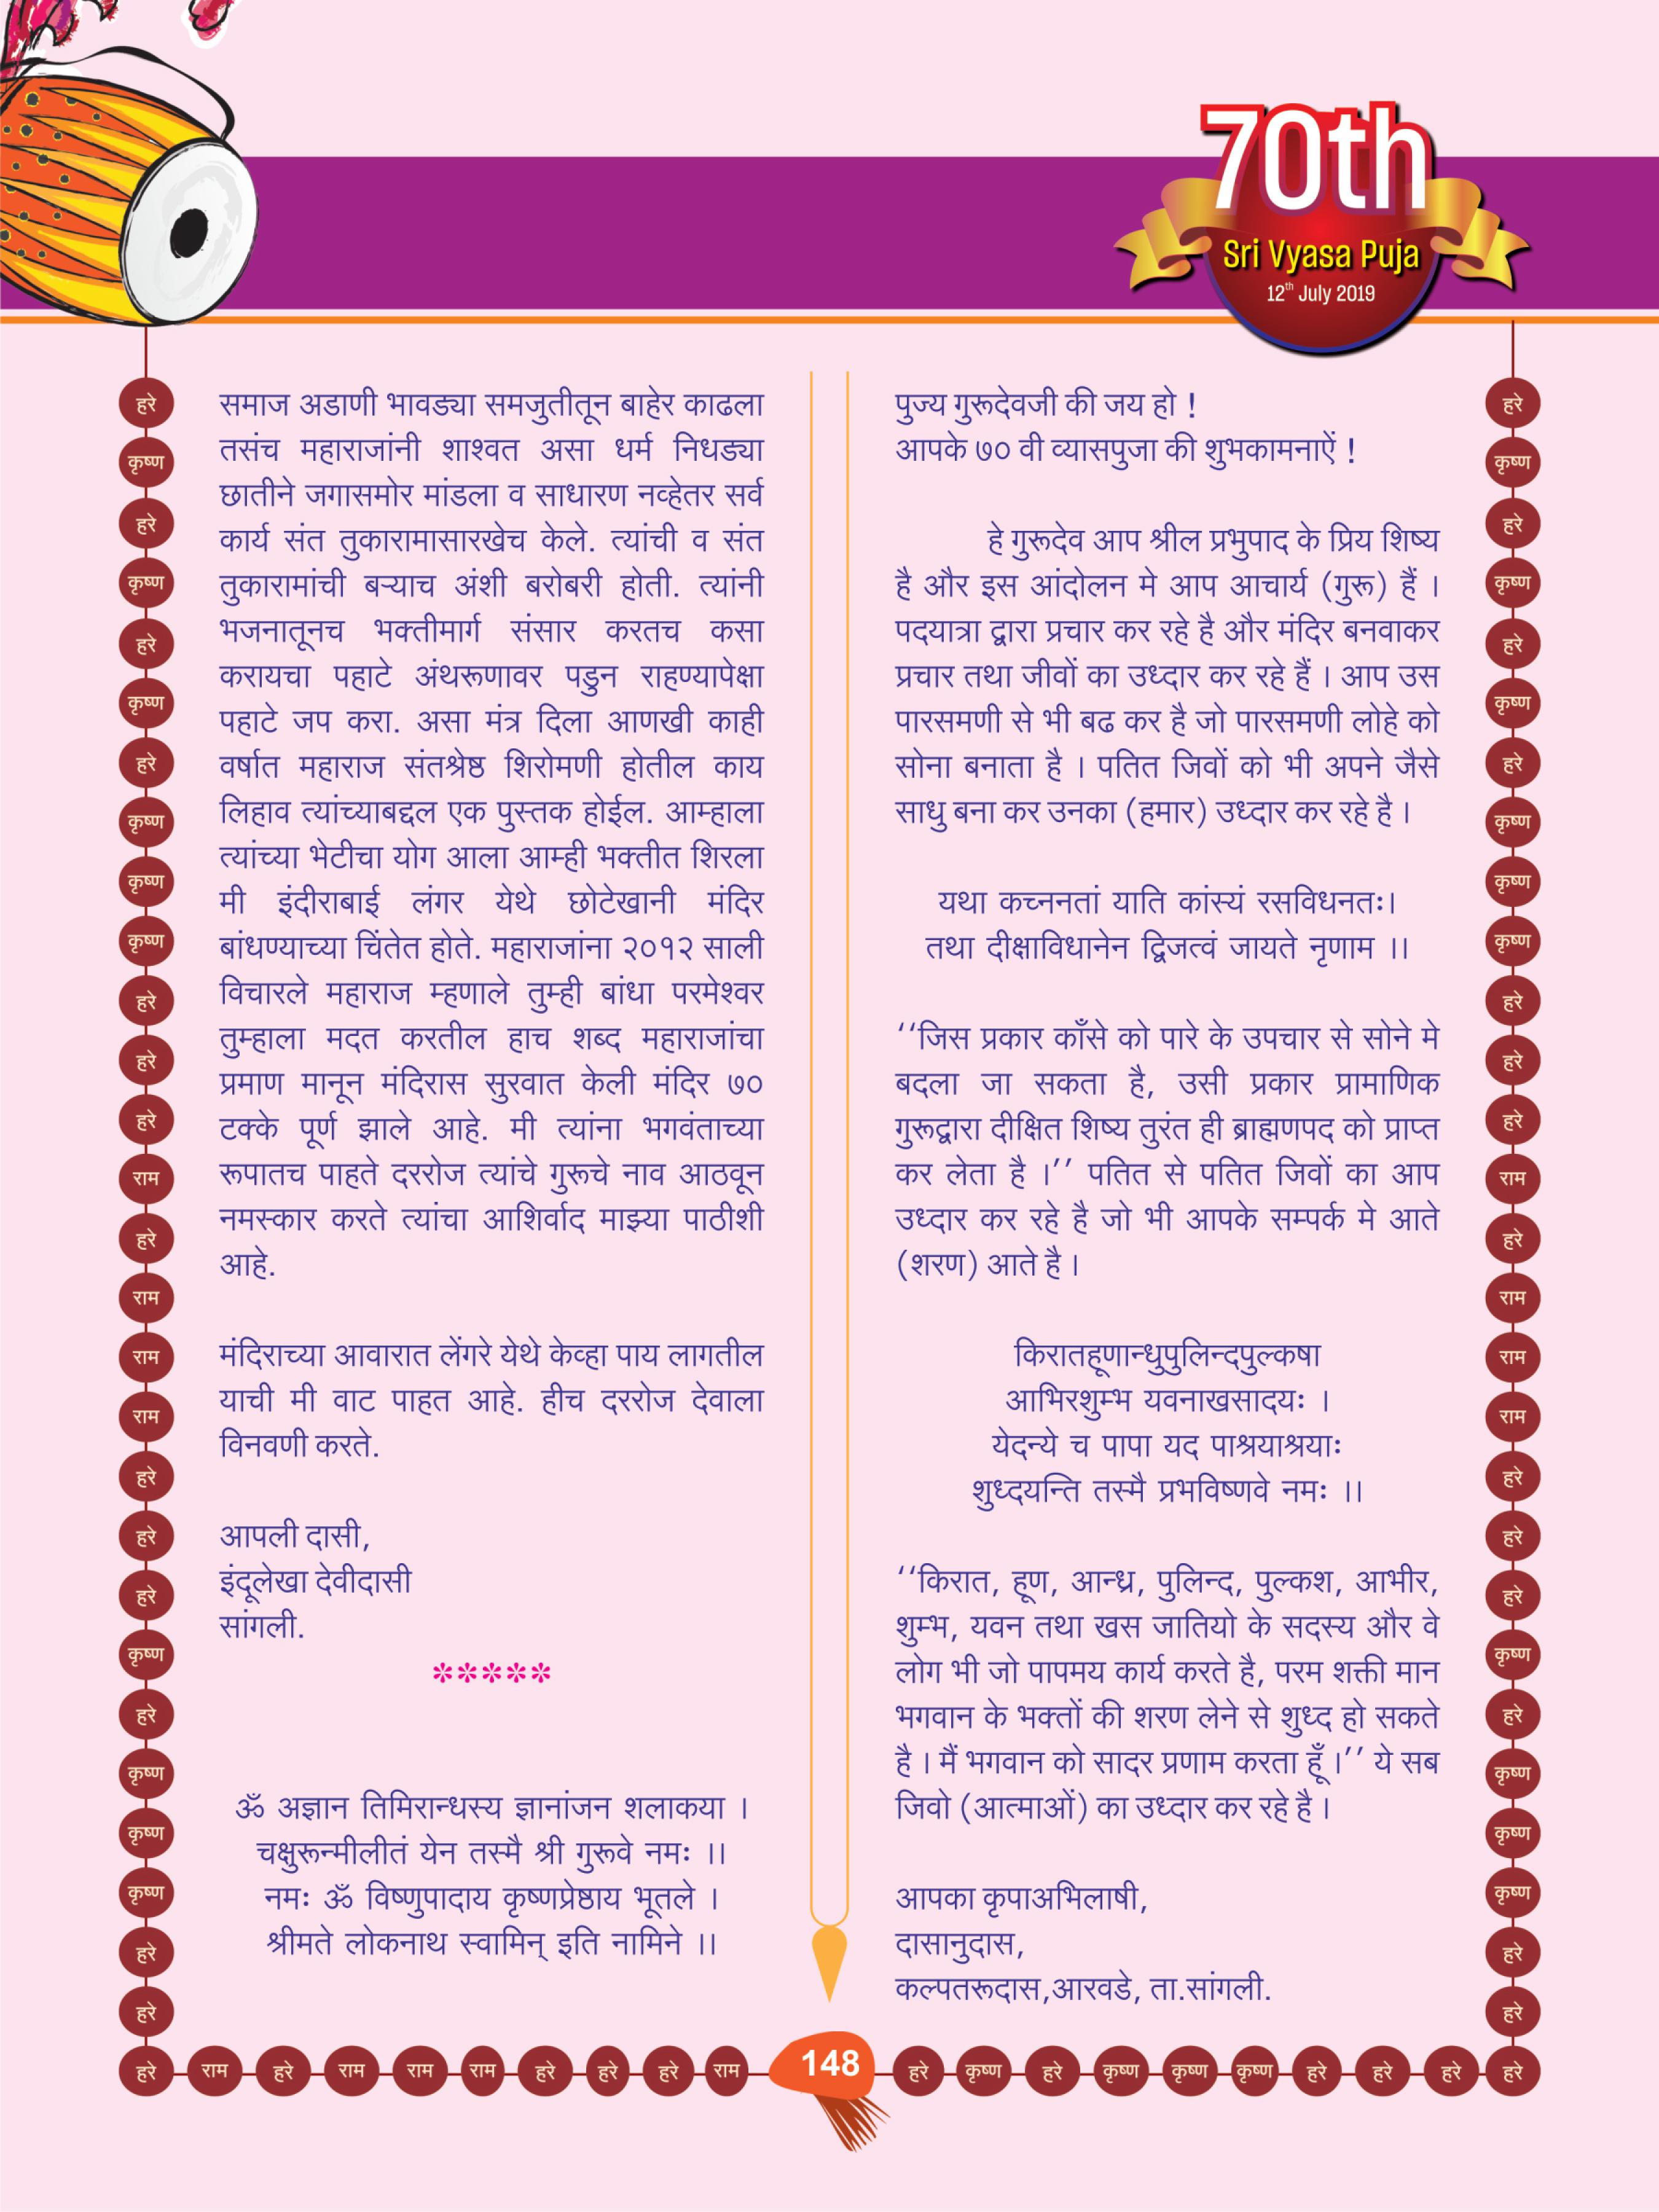 70th
Sri Vyasa Puja
12th July 2019
समाज अडाणी भावड्या समजुतीतून बाहेर काढला
तसंच महाराजांनी शाश्वत असा धर्म निधड्या
छातीने जगासमोर मांडला व साधारण नव्हेतर सर्व
कार्य संत तुकारामासारखेच केले. त्यांची व संत
तुकारामांची बऱ्याच अंशी बरोबरी होती. त्यांनी
भजनातूनच भक्तीमार्ग संसार करतच कसा
करायचा पहाटे अंथरूणावर पडुन राहण्यापेक्षा
पहाटे जप करा. असा मंत्र दिला आणखी काही
वर्षात महाराज संतश्रेष्ठ शिरोमणी होतील काय
लिहाव त्यांच्याबद्दल एक पुस्तक होईल. आम्हाला
त्यांच्या भेटीचा योग आला आम्ही भक्तीत शिरला
मी इंदीराबाई लंगर येथे छोटेखानी मंदिर
बांधण्याच्या चिंतेत होते. महाराजांना २०१२ साली
विचारले महाराज म्हणाले तुम्ही बांधा परमेश्वर
तुम्हाला मदत करतील हाच शब्द महाराजांचा
प्रमाण मानून मंदिरास सुरवात केली मंदिर ७०
टक्के पूर्ण झाले आहे. मी त्यांना भगवंताच्या
रूपातच पाहते दररोज त्यांचे गुरूचे नाव आठवून
नमस्कार करते त्यांचा आशिर्वाद माझ्या पाठीशी
आहे.
मंदिराच्या आवारात लेंगरे येथे केव्हा पाय लागतील
याची मी वाट पाहत आहे. हीच दररोज देवाला
विनवणी करते.
आपली दासी,
इंदूलेखा देवीदासी
सांगली.
*****
ॐ अज्ञान तिमिरान्धस्य ज्ञानांजन शलाकया ।
चक्षुरून्मीलीतं येन तस्मै श्री गुरूवे नमः ।।
नमः ॐ विष्णुपादाय कृष्णप्रेष्ठाय भूतले ।
श्रीमते लोकनाथ स्वामिन् इति नामिने ।।
पुज्य गुरूदेवजी की जय हो !
आपके ७० वी व्यासपुजा की शुभकामनाऐं !
हे गुरूदेव आप श्रील प्रभुपाद के प्रिय शिष्य
है और इस आंदोलन मे आप आचार्य (गुरू) हैं ।
पदयात्रा द्वारा प्रचार कर रहे है और मंदिर बनवाकर
प्रचार तथा जीवों का उध्दार कर रहे हैं । आप उस
पारसमणी से भी बढ कर है जो पारसमणी लोहे को
सोना बनाता है । पतित जिवों को भी अपने जैसे
साधु बना कर उनका (हमार) उध्दार कर रहे है ।
यथा कच्ननतां याति कांस्यं रसविधनतः।
तथा दीक्षाविधानेन द्विजत्वं जायते नृणाम ।।
‘‘जिस प्रकार काँसे को पारे के उपचार से सोने मे
बदला जा सकता है, उसी प्रकार प्रामाणिक
गुरूद्वारा दीक्षित शिष्य तुरंत ही ब्राह्मणपद को प्राप्त
कर लेता है ।’’ पतित से पतित जिवों का आप
उध्दार कर रहे है जो भी आपके सम्पर्क मे आते
(शरण) आते है ।
किरातहूणान्धुपुलिन्दपुल्कषा
आभिरशुम्भ यवनाखसादयः ।
येदन्ये च पापा यद पाश्रयाश्रयाः
शुध्दयन्ति तस्मै प्रभविष्णवे नमः ।।
‘‘किरात, हूण, आन्ध्र, पुलिन्द, पुल्कश, आभीर,
शुम्भ, यवन तथा खस जातियो के सदस्य और वे
लोग भी जो पापमय कार्य करते है, परम शक्ती मान
भगवान के भक्तों की शरण लेने से शुध्द हो सकते
है । मैं भगवान को सादर प्रणाम करता हूँ ।’’ ये सब
जिवो (आत्माओं) का उध्दार कर रहे है ।
आपका कृपाअभिलाषी,
दासानुदास,
कल्पतरूदास,आरवडे, ता.सांगली.
हरे
कृष्ण
हरे
कृष्ण
हरे
कृष्ण
हरे
कृष्ण
कृष्ण
कृष्ण
हरे
हरे
हरे
राम
हरे
राम
राम
राम
हरे
हरे
हरे
कृष्ण
हरे
कृष्ण
कृष्ण
कृष्ण
हरे
हरे
हरे
कृष्ण
हरे
कृष्ण
हरे
कृष्ण
हरे
कृष्ण
कृष्ण
कृष्ण
हरे
हरे
हरे
राम
हरे
राम
राम
राम
हरे
हरे
हरे
कृष्ण
हरे
कृष्ण
कृष्ण
कृष्ण
हरे
हरे
हरे राम हरे राम राम राम हरे हरे हरे राम 148 हरे कृष्ण हरे कृष्ण कृष्ण कृष्ण हरे हरे हरे हरे